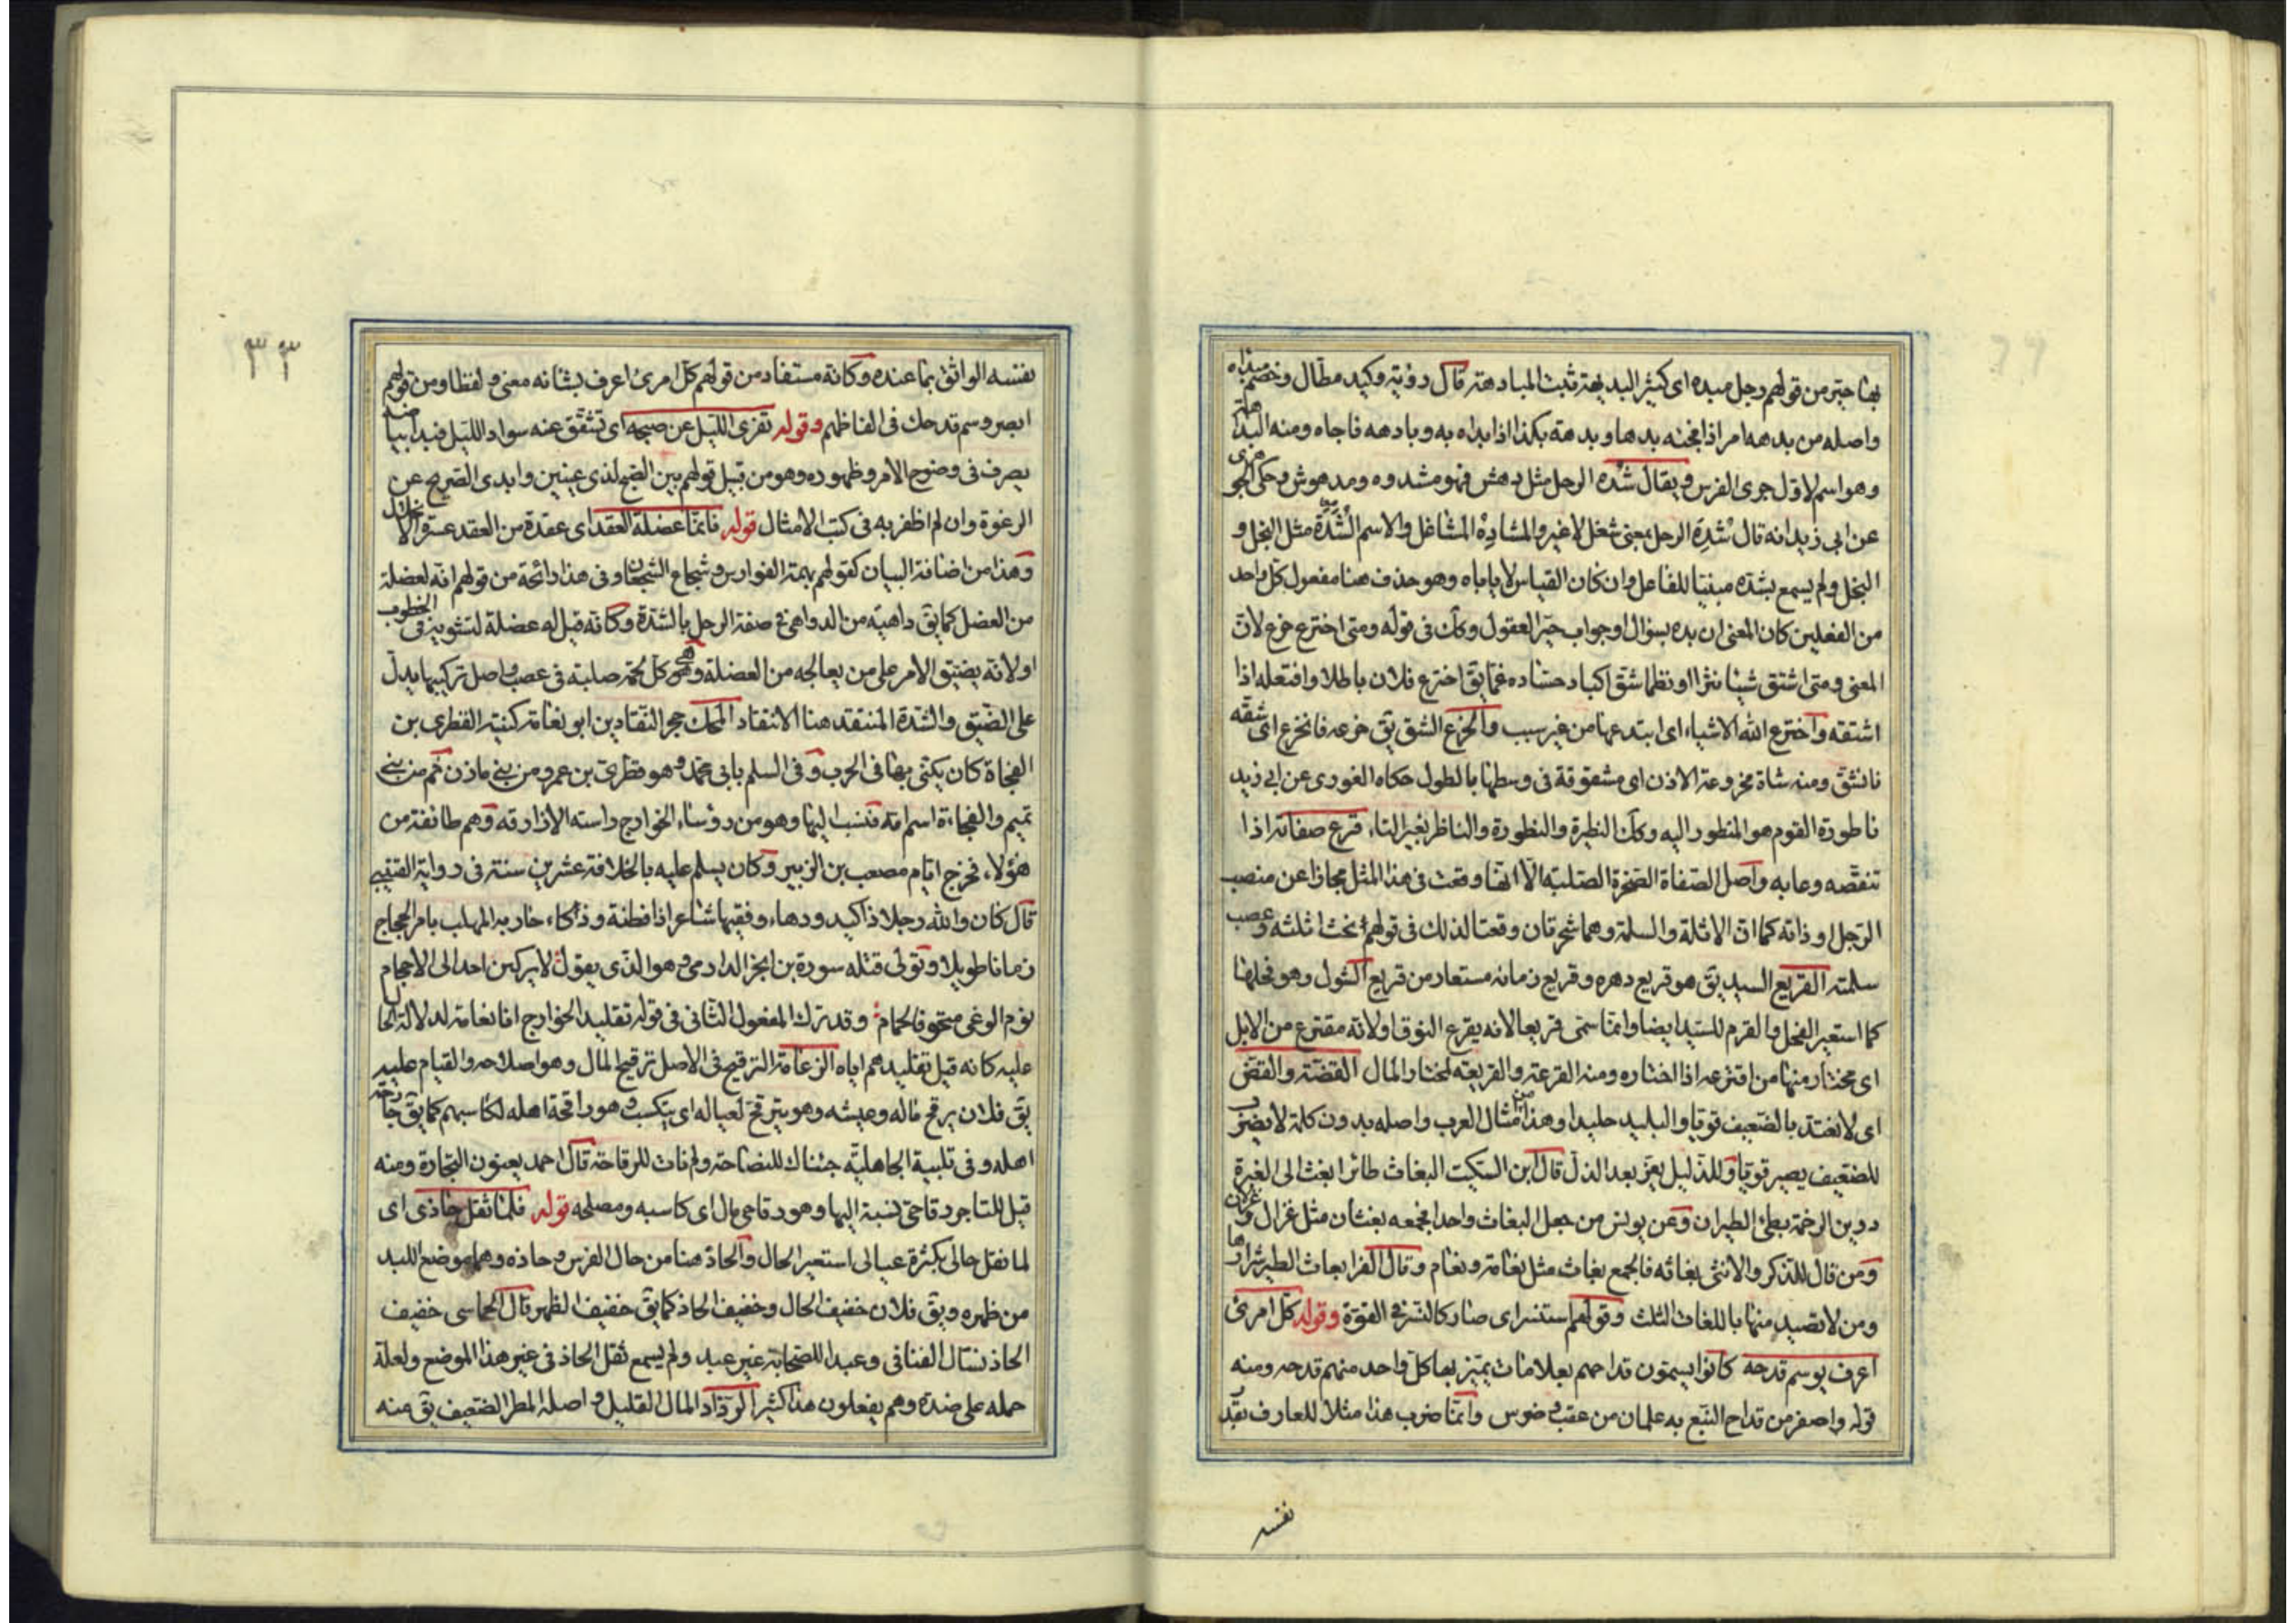 بها حبر من قولهم رجل مبده اى كثير البديهة ثبت المبادهة قال رؤبة وكيد مطال وخصم مبداه
واصله من بدهه امر اذا فجئه بدها وبدهته بكذا اذا بداه به وبادهه فاجاه ومنه البداهة
وهو اسم لاول جرى الفرس ويقال شده الرجل مثل دهش فهو مشدوه ومدهوش وحكى الجوهرى
عن ابى زيد انه قال شده الرجل بمعنى شغل لا غير والمشاده المشاغل والاسم الشده مثل البخل و
البخل ولم يسمع بشده مبنيا للفاعل وان كان القياس لا ياباه وهو حذف هنا مفعول كل واحد
من الفعلين كان المعنى ان بده بسؤال او جواب حير العقول وكك فى قوله ومتى اخترع خرع لان
المعنى ومتى اشتق شيئا نثرا او نظما شق اكباد حساده غما يق اخترع فلان باطلا وافتعله اذا
اشتقه واخترع الله الاشياء اى ابتدعها من غير سبب والخرع الشق يق خرعه فانخرع اى شقه
فانشق ومنه شاة مخروعة الاذن اى مشقوقة فى وسطها بالطول حكاه الغورى عن ابى زيد
ناطورة القوم هو المنظور اليه وكك النظيرة والنظورة والناظر بغير التاء قرع صفاته اذا
تنقصه وعابه واصل الصفاة الصخرة الصلبة الا انها وقعت فى هذا المثل مجازا عن منصب
الرجل او ذاته كما ان الاثلة والسلمة وهما شجرتان وقعتا لذلك فى قولهم نحت اثلته وعصب
سلمته القريع السيد يق هو قريع دهره وقريع زمانه مستعار من قريع الشول وهو فحلها
كما استعير الفحل والقرم للسيد ايضا وانما سمى قريعا لانه يقرع النوق او لانه مقترع من الابل
اى مختار منها من اقترعه اذا اختاره ومنه القرعة والقريعة لمختار المال القضة والقض
اى لا نعتد بالضعيف قويا والبليد جليدا وهذا من امثال العرب واصله بدون كلمة لا يضرب
للضعيف يصير قويا وللذليل يعز بعد الذل قال ابن السكيت البغاث طائر ابغث الى الغبرة
دوين الرخمة بطئ الطيران وعن يونس من جعل البغاث واحدا فجمعه بغثان مثل غزال وغزلان
ومن قال للذكر والانثى بغاثه فالجمع بغاث مثل نعامة ونعام وقال الفرا بغاث الطير شرارها
ومن لا تصيد منها باللغات الثلث وقولهم استنسر اى صار كالنسر فى القوة وقوله كل امرئ
اعرف بوسم قدحه كانوا يسمون قداحهم بعلامات يميز بها كل واحد منهم قدحه ومنه
قوله واصفر من قداح النبع به علمان من عقب وضرس وانما ضرب هذا مثلا للعارف بقدر
نفسه
٣٣
نفسه الواثق بما عنده وكانه مستفاد من قولهم كل امرئ اعرف بشانه معنى ولفظا ومن قولهم
ابصر وسم قدحك فى الفاظهم وقوله تفرى الليل عن صبحه اى تشقق عنه سواد الليل فبدا بياضه
يصرف فى وضوح الامر وظهوره وهو من قبيل قولهم بين الصبح لذى عينين وابدى الصريح عن
الرغوة وان لم اظفر به فى كتب الامثال قوله فانما عضلة العقد اى عقدة من العقد عسرة الانحلال
وهذا من اضافة البيان كقولهم بهمة الفوارس وشجاع الشجعان وفى هذا رائحة من قولهم انه لعضلة
من العضل كما يق داهية من الدواهى فى صفة الرجل بالشدة وكانه قيل له عضلة لتشويه فى الخطوب
او لانه يضيق الامر على من يعالجه من العضلة وهى كل لحمة صلبة فى عصب واصل تركيبها يدل
على الضيق والشدة المنتقد هنا الانتقاد المحك حجر النقادين ابو نعامة كنية القطرى بن
الفجاة كان يكنى بها فى الحرب وفى السلم بابى محمد وهو قطرى بن عمرو من بنى مازن ثم من بنى
تميم والفجاءة اسم امه فنسب اليها وهو من رؤساء الخوارج واسته الازارقة وهم طائفة من
هؤلاء فخرج ايام مصعب بن الزبير وكان يسلم عليه بالخلافة عشرين سنة فى رواية القتيبى
قال كان والله رجلا ذا كيد ودهاء وفقيها شاعرا ذا فطنة وذكاء حاربه المهلب بامر الحجاج
زمانا طويلا وتولى قتله سورة بن ابجر الدارمى وهو الذى يقول لا يركبن احد الى الاحجام
يوم الوغى متخوفا لحمام وقد ترك المفعول الثانى فى قوله تقليد الخوارج ابا نعامة لدلالة الحال
عليه كانه قيل تقليدهم اياه الزعامة الترقيح فى الاصل ترقيح المال وهو اصلاحه والقيام عليه
يق فلان يرقح ماله وعيشه وهو يترقح لعياله اى يتكسب وهو راقحة اهله لكاسبهم كما يق جارحة
اهله وفى تلبية الجاهلية جئناك للنصاحة ولم نات للرقاحة قال احمد يعنون التجارة ومنه
قيل للتاجر رقاحى نسبة اليها وهو رقاحى مال اى كاسبه ومصلحه قوله فلما ثقل حاذى اى
لما ثقل حالى بكثرة عيالى استعير الحال والحاذ هنا من حال الفرس وحاذه وهما موضع اللبد
من ظهره ويق فلان خفيف الحال وخفيف الحاذ كما يق خفيف الظهر قال الحماسى خفيف
الحاذ نسال الفيافى وعبد اللصحابة غير عبد ولم يسمع ثقل الحاذ فى غير هذا الموضع ولعله
حمله على ضده وهم يفعلون هذا كثيرا الرذاذ المال القليل واصله المطر الضعيف يق منه